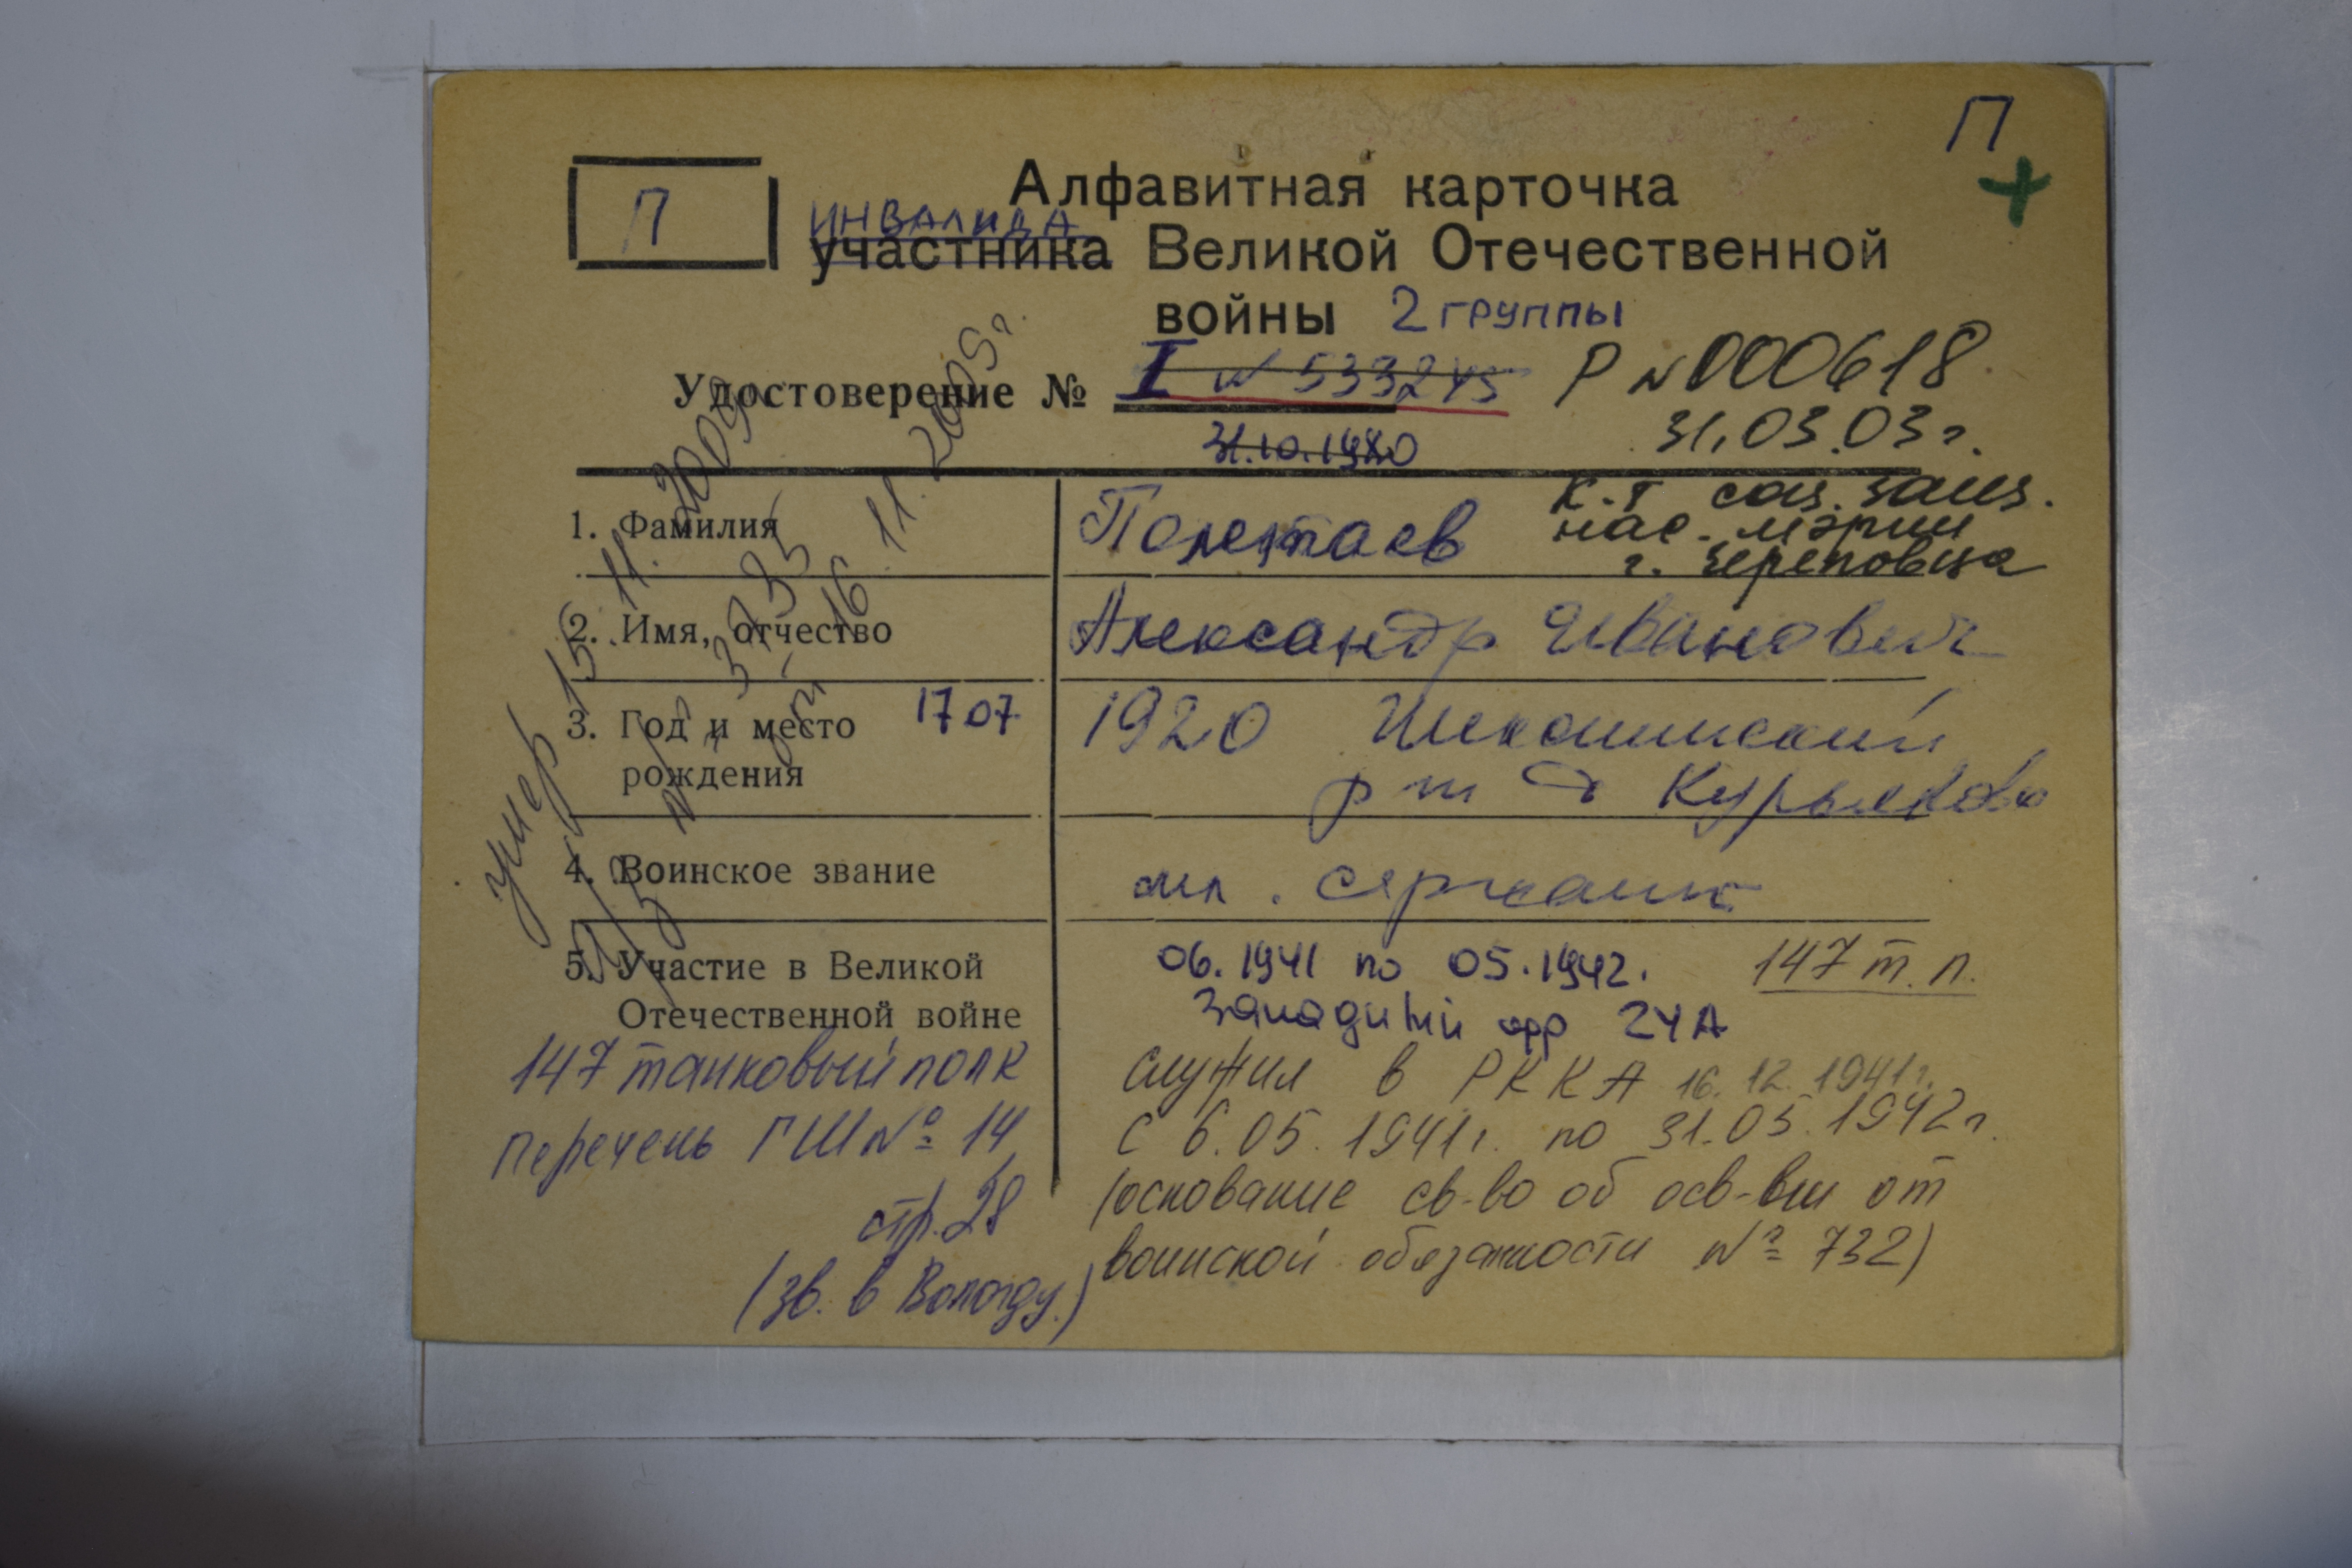 П
П
Алфавитная карточка
ИНВАЛИДА
участника Великой Отечественной
войны 2 группы
Удостоверение № I № 533245 Р №000618
31.10.1980 31.03.03г.
К-т соц. защ.
нас. мэрии
г. Череповца
1. Фамилия Полетаев
2. Имя, отчество Александр Иванович
3. Год и место 17 07 1920 Шекснинский
рождения р-н д Курьяково
4. Воинское звание мл. сержант
5. Участие в Великой 06.1941 по 05.1942. 147 т.п.
Отечественной войне Западный фр 24А
147 танковый полк
Перечень ГШ № 14
стр. 28
(зв. в Вологду.)
служил в РККА 16.12.1941г.
с 6.05.1941г. по 31.05.1942г.
(основание св-во об осв-ии от
воинской обязанности № 732)
умер 15.11.2009г.
16.11.2009г.